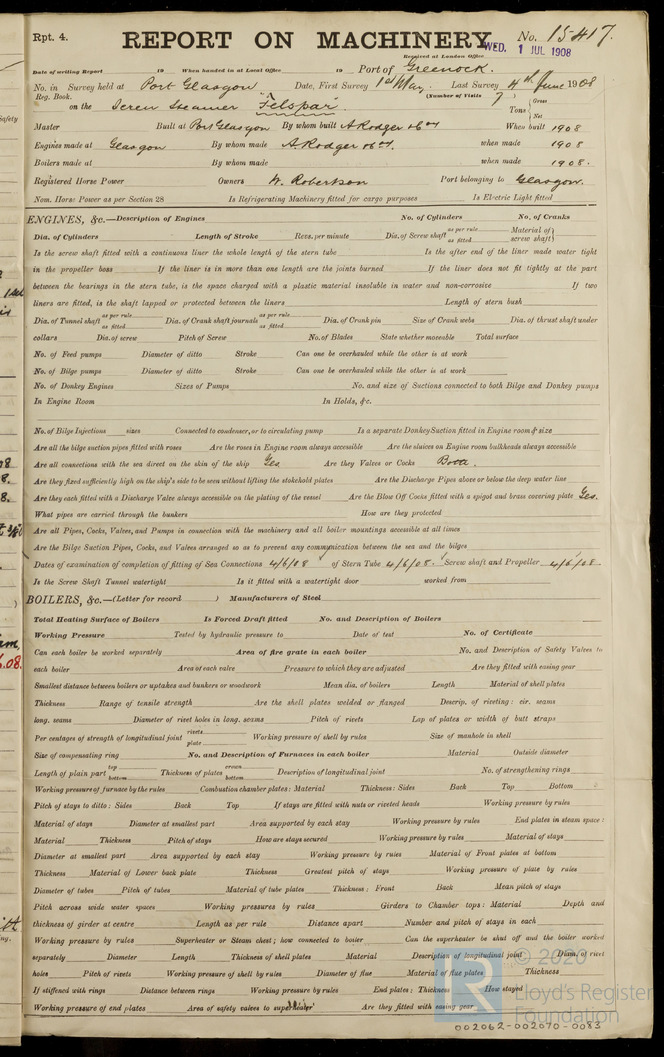 Rpt. 4.
REPORT ON MACHINERY.
No. 15417.
Received at London Office
WED. 1 JUL 1908
Date of writing Report 19 When handed in at Local Office 19 Port of Greenock.
No. in Survey held at Port Glasgow Date, First Survey 1st May. Last Survey 4th June 1908
Reg. Book. (Number of Visits 7)
on the Screw Steamer "Felspar" Tons Gross Net
Master Built at Port Glasgow By whom built A Rodger & Co When built 1908
Engines made at Glasgow By whom made A. Rodger & Co. when made 1908
Boilers made at By whom made when made 1908.
Registered Horse Power Owners W. Robertson Port belonging to Glasgow.
Nom. Horse Power as per Section 28 Is Refrigerating Machinery fitted for cargo purposes Is Electric Light fitted
ENGINES, &c.—Description of Engines No. of Cylinders No. of Cranks
Dia. of Cylinders Length of Stroke Revs. per minute Dia. of Screw shaft as per rule as fitted Material of screw shaft
Is the screw shaft fitted with a continuous liner the whole length of the stern tube Is the after end of the liner made water tight
in the propeller boss If the liner is in more than one length are the joints burned If the liner does not fit tightly at the part
between the bearings in the stern tube, is the space charged with a plastic material insoluble in water and non-corrosive If two
liners are fitted, is the shaft lapped or protected between the liners Length of stern bush
Dia. of Tunnel shaft as per rule as fitted Dia. of Crank shaft journals as per rule as fitted Dia. of Crank pin Size of Crank webs Dia. of thrust shaft under
collars Dia. of screw Pitch of Screw No. of Blades State whether moveable Total surface
No. of Feed pumps Diameter of ditto Stroke Can one be overhauled while the other is at work
No. of Bilge pumps Diameter of ditto Stroke Can one be overhauled while the other is at work
No. of Donkey Engines Sizes of Pumps No. and size of Suctions connected to both Bilge and Donkey pumps
In Engine Room In Holds, &c.
No. of Bilge Injections sizes Connected to condenser, or to circulating pump Is a separate Donkey Suction fitted in Engine room & size
Are all the bilge suction pipes fitted with roses Are the roses in Engine room always accessible Are the sluices on Engine room bulkheads always accessible
Are all connections with the sea direct on the skin of the ship Yes Are they Valves or Cocks Both.
Are they fixed sufficiently high on the ship's side to be seen without lifting the stokehold plates Are the Discharge Pipes above or below the deep water line
Are they each fitted with a Discharge Valve always accessible on the plating of the vessel Are the Blow Off Cocks fitted with a spigot and brass covering plate Yes.
What pipes are carried through the bunkers How are they protected
Are all Pipes, Cocks, Valves, and Pumps in connection with the machinery and all boiler mountings accessible at all times
Are the Bilge Suction Pipes, Cocks, and Valves arranged so as to prevent any communication between the sea and the bilges
Dates of examination of completion of fitting of Sea Connections 4/6/08 of Stern Tube 4/6/08. Screw shaft and Propeller 4/6/08
Is the Screw Shaft Tunnel watertight Is it fitted with a watertight door worked from
BOILERS, &c.—(Letter for record ) Manufacturers of Steel
Total Heating Surface of Boilers Is Forced Draft fitted No. and Description of Boilers
Working Pressure Tested by hydraulic pressure to Date of test No. of Certificate
Can each boiler be worked separately Area of fire grate in each boiler No. and Description of Safety Valves to
each boiler Area of each valve Pressure to which they are adjusted Are they fitted with easing gear
Smallest distance between boilers or uptakes and bunkers or woodwork Mean dia. of boilers Length Material of shell plates
Thickness Range of tensile strength Are the shell plates welded or flanged Descrip. of riveting: cir. seams
long. seams Diameter of rivet holes in long. seams Pitch of rivets Lap of plates or width of butt straps
Per centages of strength of longitudinal joint rivets plate Working pressure of shell by rules Size of manhole in shell
Size of compensating ring No. and Description of Furnaces in each boiler Material Outside diameter
Length of plain part top bottom Thickness of plates crown bottom Description of longitudinal joint No. of strengthening rings
Working pressure of furnace by the rules Combustion chamber plates: Material Thickness: Sides Back Top Bottom
Pitch of stays to ditto: Sides Back Top If stays are fitted with nuts or riveted heads Working pressure by rules
Material of stays Diameter at smallest part Area supported by each stay Working pressure by rules End plates in steam space:
Material Thickness Pitch of stays How are stays secured Working pressure by rules Material of stays
Diameter at smallest part Area supported by each stay Working pressure by rules Material of Front plates at bottom
Thickness Material of Lower back plate Thickness Greatest pitch of stays Working pressure of plate by rules
Diameter of tubes Pitch of tubes Material of tube plates Thickness: Front Back Mean pitch of stays
Pitch across wide water spaces Working pressures by rules Girders to Chamber tops: Material Depth and
thickness of girder at centre Length as per rule Distance apart Number and pitch of stays in each
Working pressure by rules Superheater or Steam chest; how connected to boiler Can the superheater be shut off and the boiler worked
separately Diameter Length Thickness of shell plates Material Description of longitudinal joint Diam. of rivet
holes Pitch of rivets Working pressure of shell by rules Diameter of flue Material of flue plates Thickness
If stiffened with rings Distance between rings Working pressure by rules End plates: Thickness How stayed
Working pressure of end plates Area of safety valves to superheater Are they fitted with easing gear
© 2020
Lloyd's Register
Foundation
002062-002070-0083